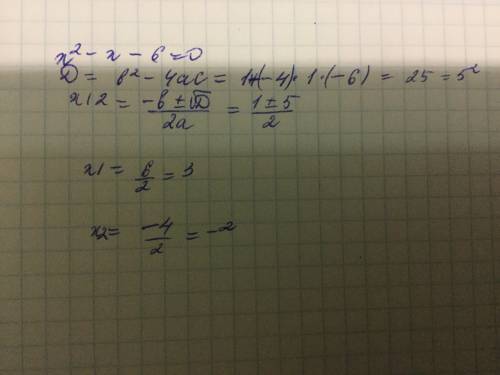 x² - x - 6 = 0
D = b² - 4ac = 1+(-4)·1·(-6) = 25 = 5²
x12 = \frac{-b ± √D}{2a} = \frac{1 ± 5}{2}
x1 = \frac{6}{2} = 3
x2 = \frac{-4}{2} = -2